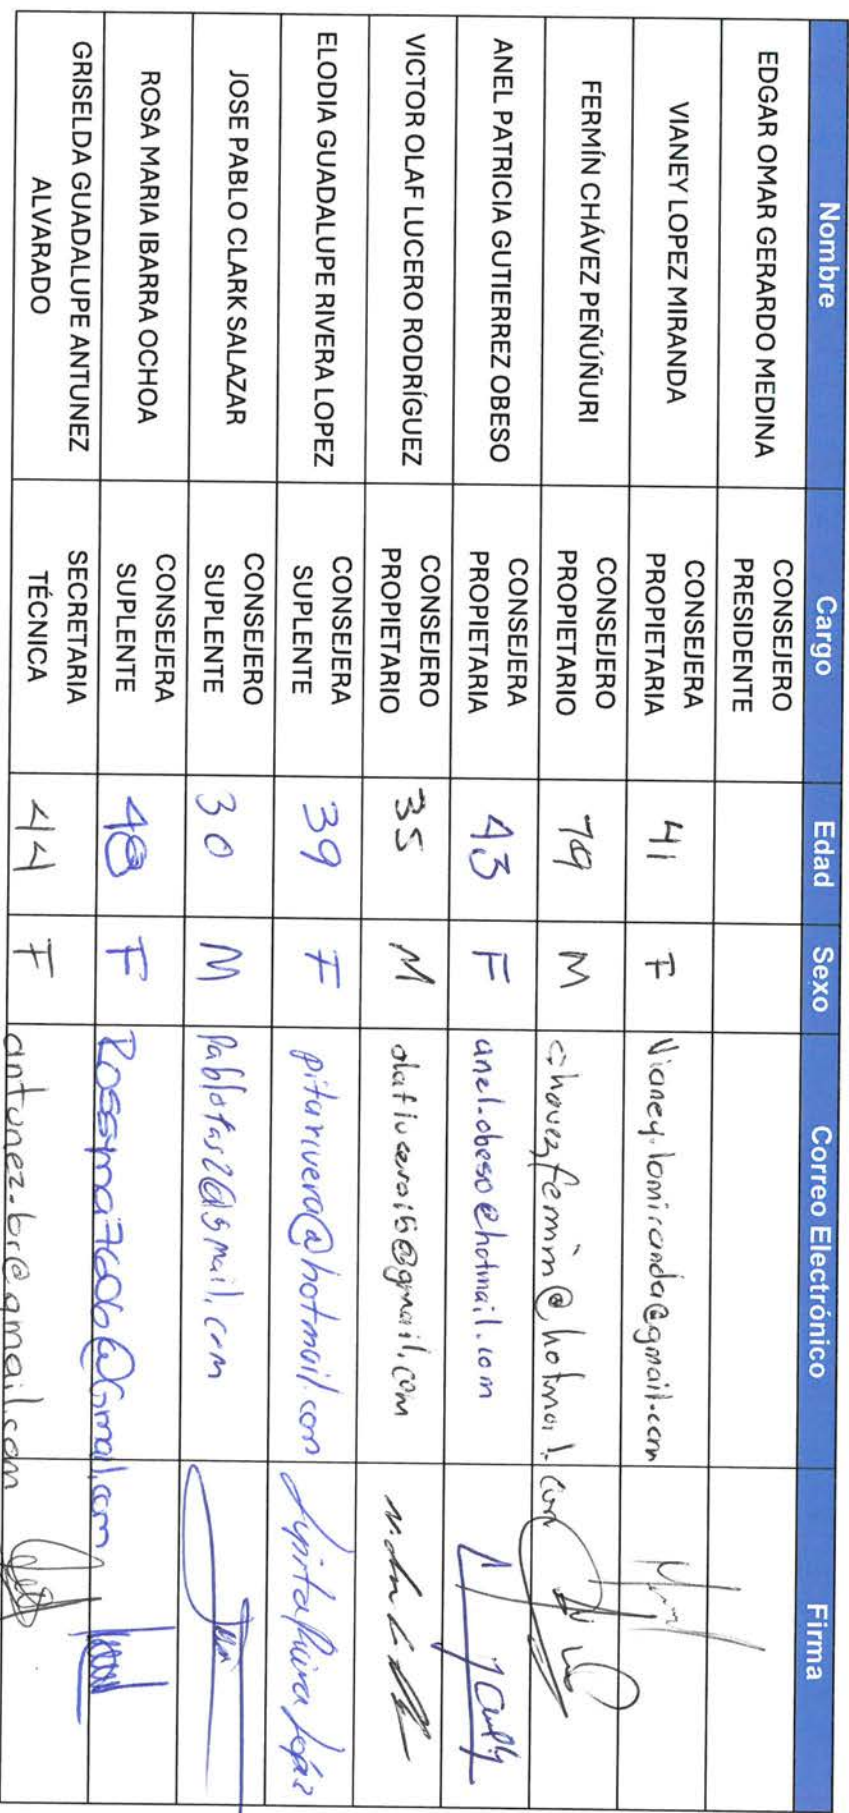 Nombre Cargo Edad Sexo Correo Electrónico Firma
EDGAR OMAR GERARDO MEDINA CONSEJERO
PRESIDENTE
VIANEY LOPEZ MIRANDA CONSEJERA
PROPIETARIA 41 F Vianey.lomiranda@gmail.com
FERMÍN CHÁVEZ PEÑÚÑURI CONSEJERO
PROPIETARIO 79 M chavezfermin@hotmail.com
ANEL PATRICIA GUTIERREZ OBESO CONSEJERA
PROPIETARIA 43 F anel.obeso@hotmail.com
VICTOR OLAF LUCERO RODRÍGUEZ CONSEJERO
PROPIETARIO 35 M olaflucero15@gmail.com
ELODIA GUADALUPE RIVERA LOPEZ CONSEJERA
SUPLENTE 39 F pitarivera@hotmail.com Lupita Rivera López
JOSE PABLO CLARK SALAZAR CONSEJERO
SUPLENTE 30 M
ROSA MARIA IBARRA OCHOA CONSEJERA
SUPLENTE 48 F Rossyma7606@Gmail.com
GRISELDA GUADALUPE ANTUNEZ
ALVARADO SECRETARIA
TÉCNICA 44 F antunez.br@gmail.com